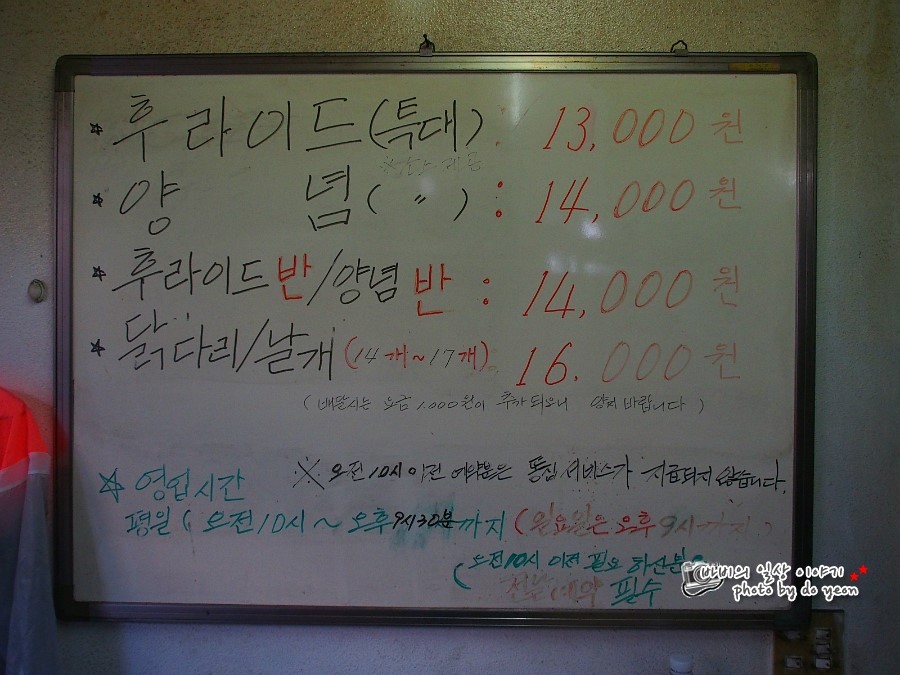 ☆ 후라이드(특대) : 13,000원
☆ 양 념( 〃 ) : 14,000원
☆ 후라이드반/양념반 : 14,000원
☆ 닭다리/날개(14개~17개) 16.000원
( 배달시는 요금 1,000원이 추가되오니 양지바랍니다 )
※ 오전10시이전 예약분은 똥집서비스가 지급되지 않습니다.
☆ 영업시간
평일( 오전10시~오후9시30분까지(일요일은 오후9시까지)
(오전10시 이전 필요하신분
전날예약 필수
바비의 일상 이야기
photo by do yeon